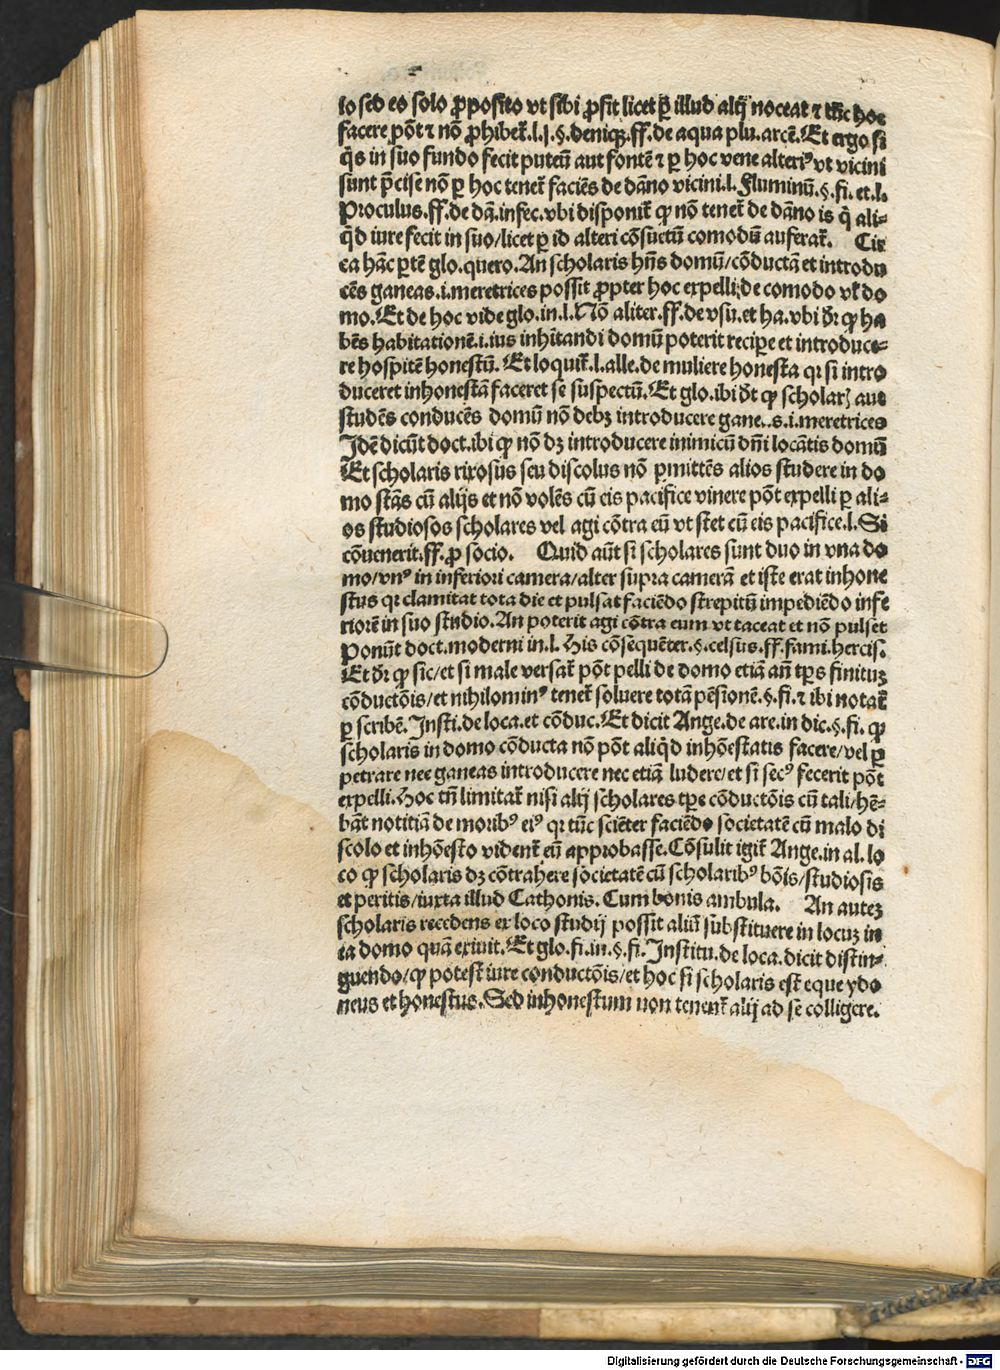 io sed eo solo ꝓposito vt sibi ꝓsit licet ꝑ illud alij noceat ⁊ tūc hoc
facere pōt ⁊ nō ꝓhibet̄.l.j.§.deniqꝫ.ff.de aqua plu.arcē. Et ergo si
q̄s in suo fundo fecit puteū aut fontē ⁊ ꝑ hoc vene alteriꝰ vt vicini
sunt p̄cise nō ꝑ hoc tenet̄ faciēs de dāno vicini.l. Fluminū.§.fi.et.l.
Proculus.ff.de dā.infec.vbi disponit̄ ꝙ nō tenet̄ de dāno is q̄ ali⸗
q̄d iure fecit in suo/licet ꝑ id alteri cōsuetū comodū auferat̄. Cir
ca hāc ꝑtē glo.quero. An scholaris hn̄s domū/cōductā et introdu
cēs ganeas.i.meretrices possit ꝓpter hoc expelli de comodo vl̄ do
mo. Et de hoc vide glo.in.l. Nō aliter.ff.de vsu.et ha.vbi dr̄ ꝙ ha
bēs habitationē.i.ius inhitandi domū poterit recipe et introduce⸗
re hospitē honestū. Et loquit̄.l.alle.de muliere honesta qꝛ si intro
duceret inhonestā faceret se suspectū. Et glo.ibi dt̄ ꝙ scholar⁊ aut
studēs conducēs domū nō debꝫ introducere gane..s.i.meretrices
Jdē dicūt doct.ibi ꝙ nō dꝫ introducere inimicū dn̄i locātis domū
Et scholaris rixosus seu discolus nō ꝑmittēs alios studere in do
mo stās cū alijs et nō volēs cū eis pacifice viuere pōt expelli ꝑ ali⸗
os studiosos scholares vel agi cōtra eū vt stet cū eis pacifice.l. Si
cōuenerit.ff.ꝓ socio. Quid aūt si scholares sunt duo in vna do
mo/vnꝰ in inferiori camera/alter supra camerā et iste erat inhone
stus qꝛ clamitat tota die et pulsat faciēdo strepitū impediēdo infe
riorē in suo studio. An poterit agi cōtra eum vt taceat et nō pulset
Ponūt doct.moderni in.l. His cōsequēter.§.celsus.ff.fami.hercis.
Et dr̄ ꝙ sic/et si male versat̄ pōt pelli de domo etiā an̄ tp̄s finituꝫ
cōductōis/et nihilominꝰ tenet̄ soluere totā pēsionē.§.fi.⁊ ibi notat̄
ꝑ scribē. Jnsti.de loca.et cōduc. Et dicit Ange.de are.in dic.§.fi. ꝙ
scholaris in domo cōducta nō pōt aliq̄d inhōestatis facere/vel ꝑ
petrare nec ganeas introducere nec etiā ludere/et si secꝰ fecerit pōt
expelli. Hoc tn̄ limitat̄ nisi alij scholares tp̄e cōductōis cū tali/hē⸗
bāt notitiā de moribꝰ eiꝰ qꝛ tūc sciēter faciēdo societatē cū malo di
scolo et inhōesto vident̄ eū approbasse. Cōsulit igit̄ Ange.in al.lo
co ꝙ scholaris dꝫ cōtrahere societatē cū scholaribꝰ bōis/studiosis
et peritis/iuxta illud Cathonis. Cum bonis ambula. An auteꝫ
scholaris recedens ex loco studij possit aliū substituere in locuꝫ in
ea domo quā exiuit. Et glo.fi.in.§.fi. Jnstitu.de loca.dicit distin⸗
guendo/ꝙ potest iure conductōis/et hoc si scholaris est eque ydo
neus et honestus. Sed inhonestum non tenent̄ alij ad se colligere.
Digitalisierung gefördert durch die Deutsche Forschungsgemeinschaft - DFG